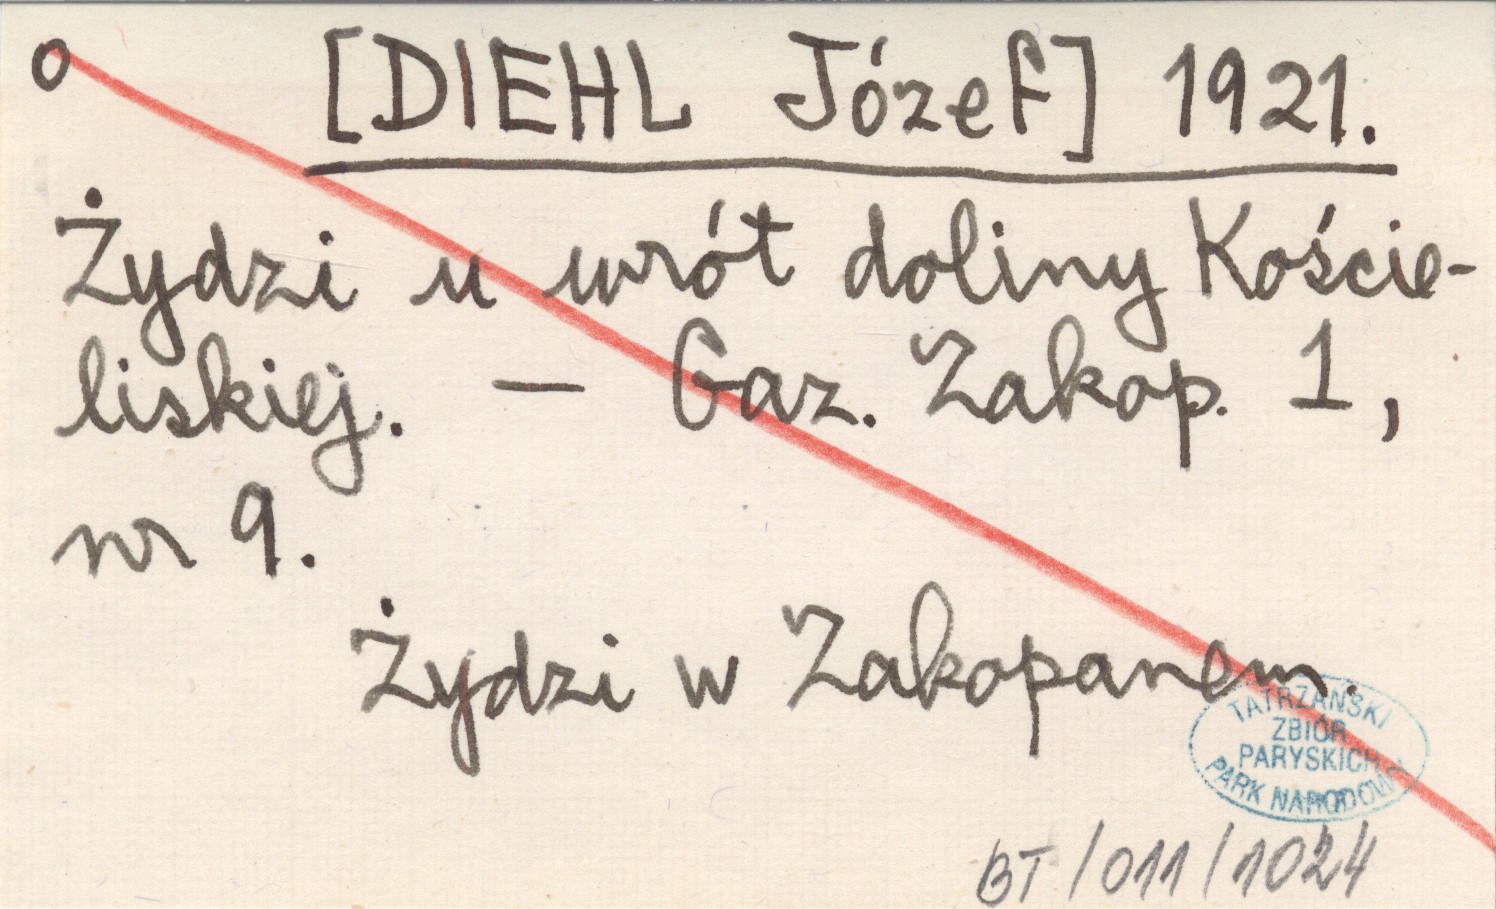 o [DIEHL Józef] 1921.
Żydzi u wrót doliny Koście-
liskiej. — Gaz. Zakop. 1,
nr 9.
Żydzi w Zakopanem.
TATRZAŃSKI
ZBIÓR
PARYSKICH
PARK NARODOWY
BT/011/1024